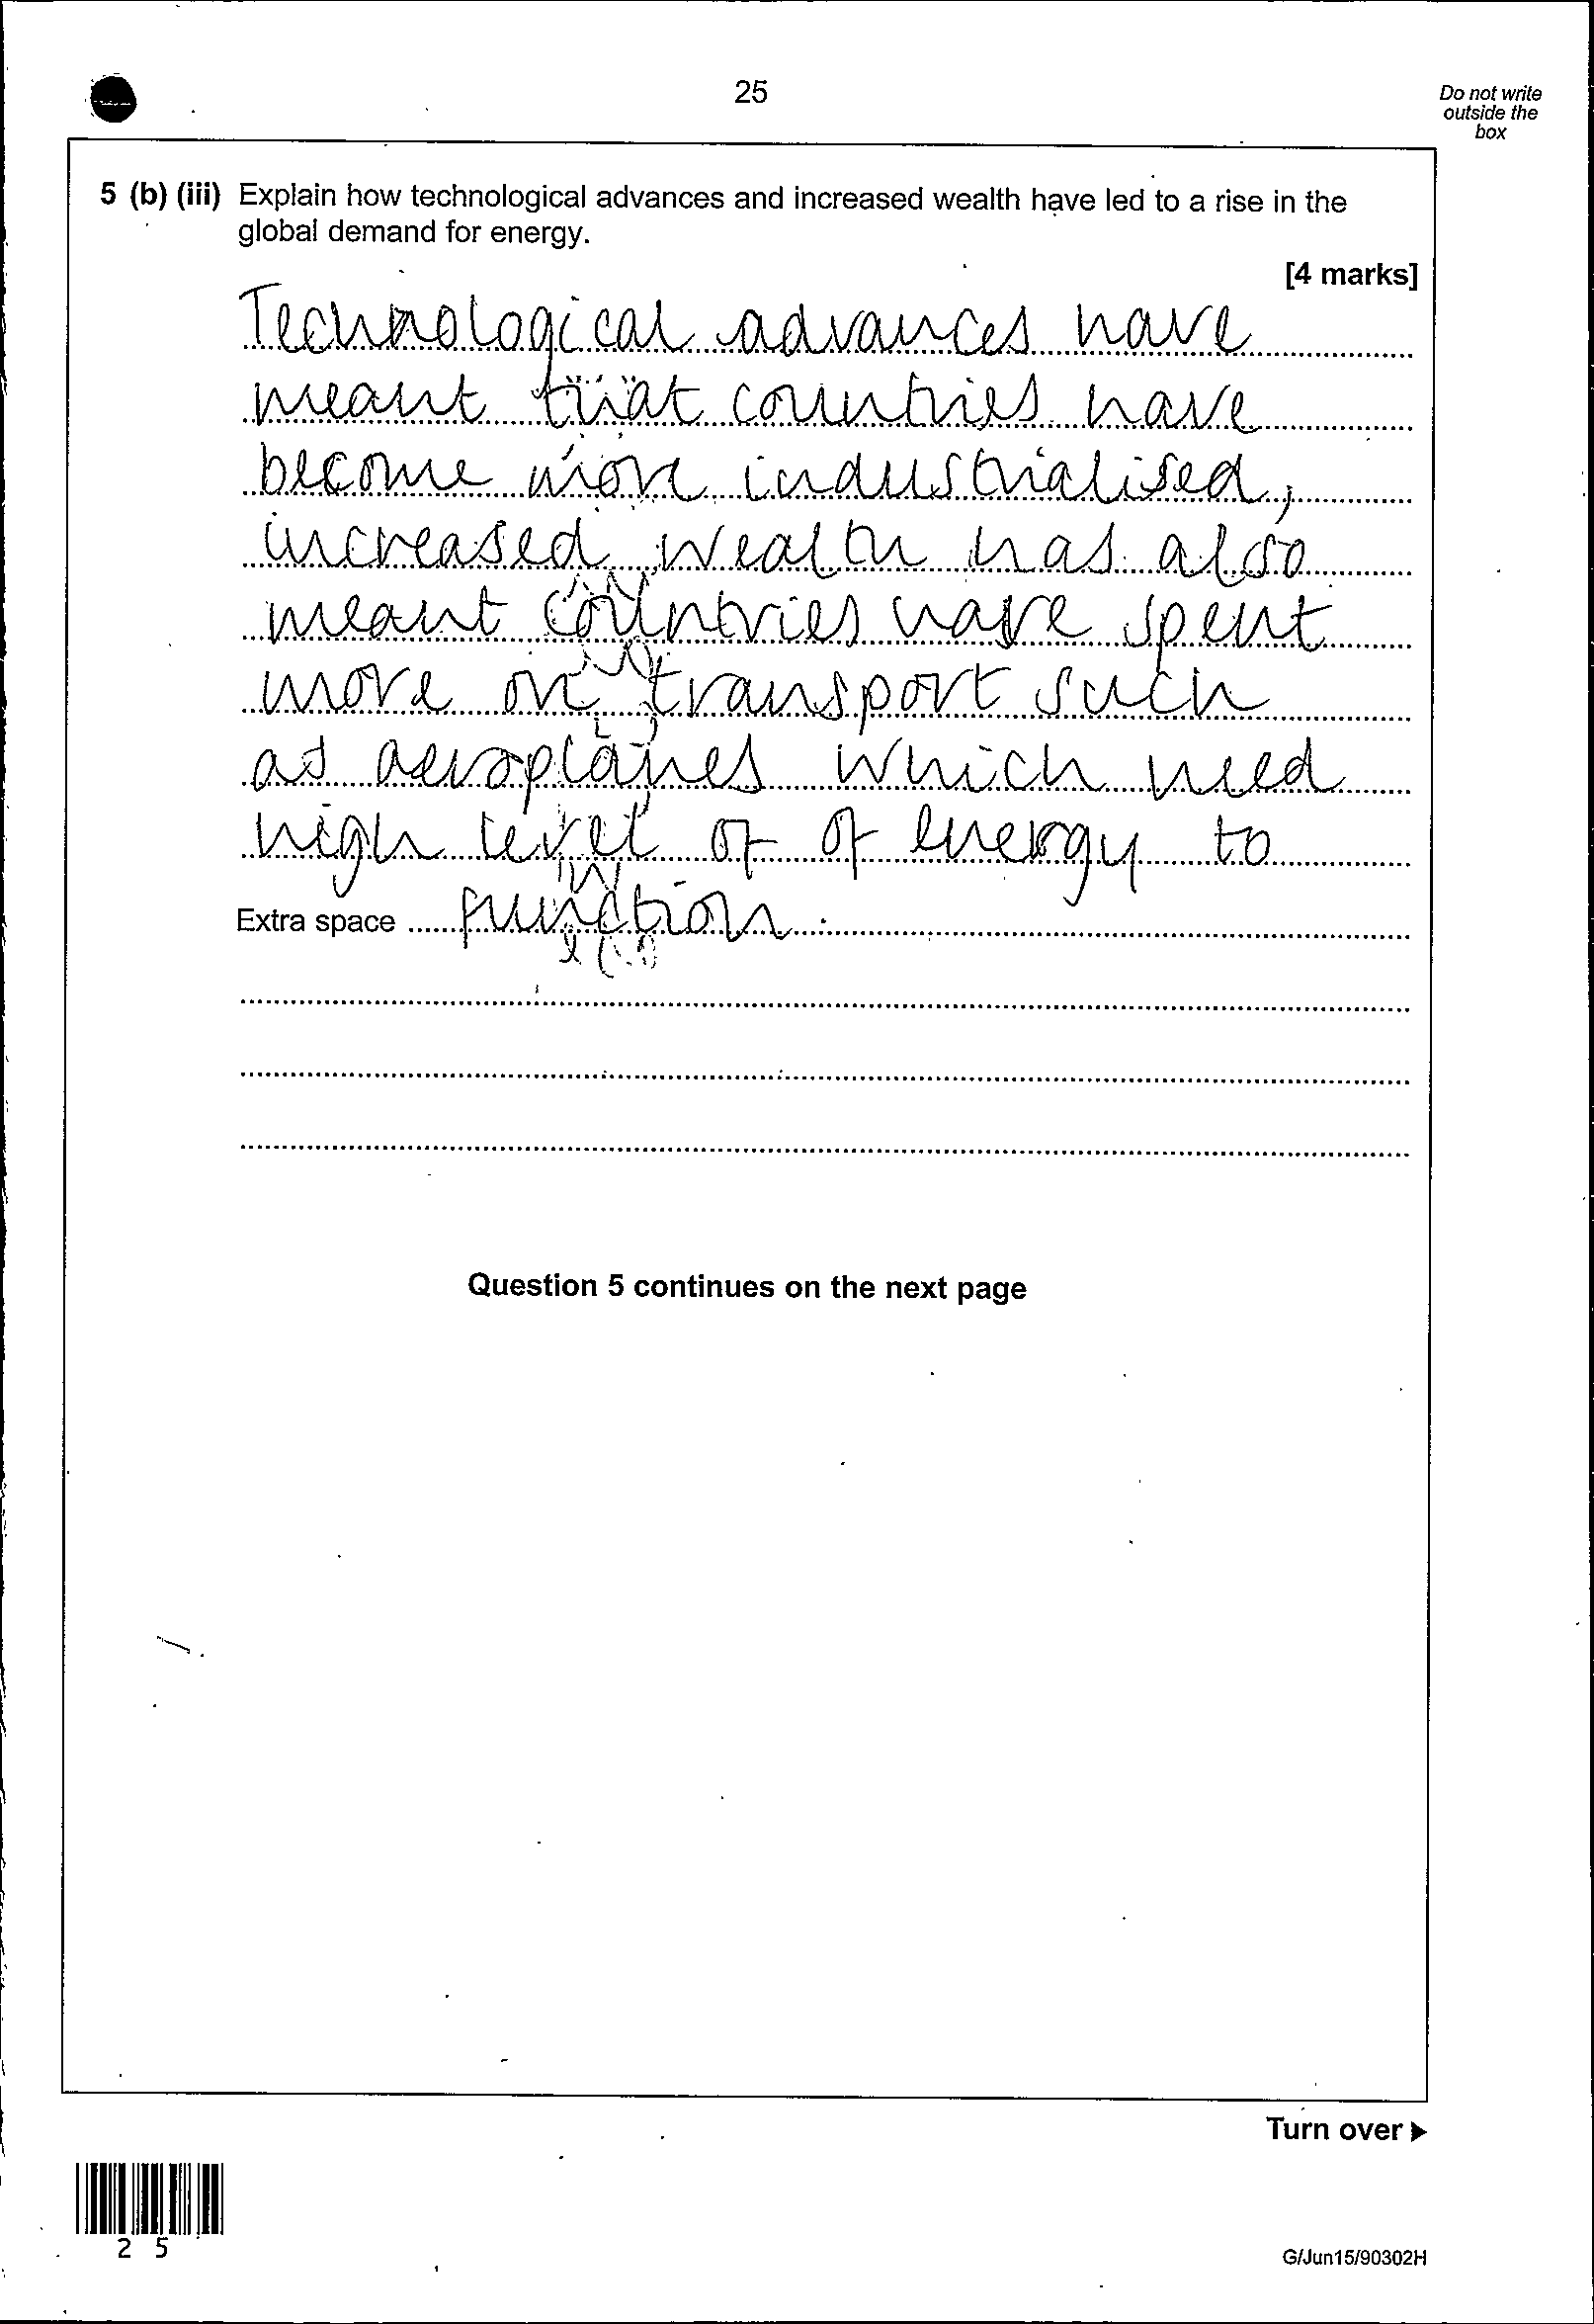 25
Do not write
outside the
box
5 (b) (iii) Explain how technological advances and increased wealth have led to a rise in the
global demand for energy.
[4 marks]
Technological advances have
meant that countries have
become more industrialised,
increased wealth has also
meant countries have spent
more on transport such
as aeroplanes which need
high level of of energy to
Extra space function.
Question 5 continues on the next page
Turn over ▶
2 5
G/Jun15/90302H